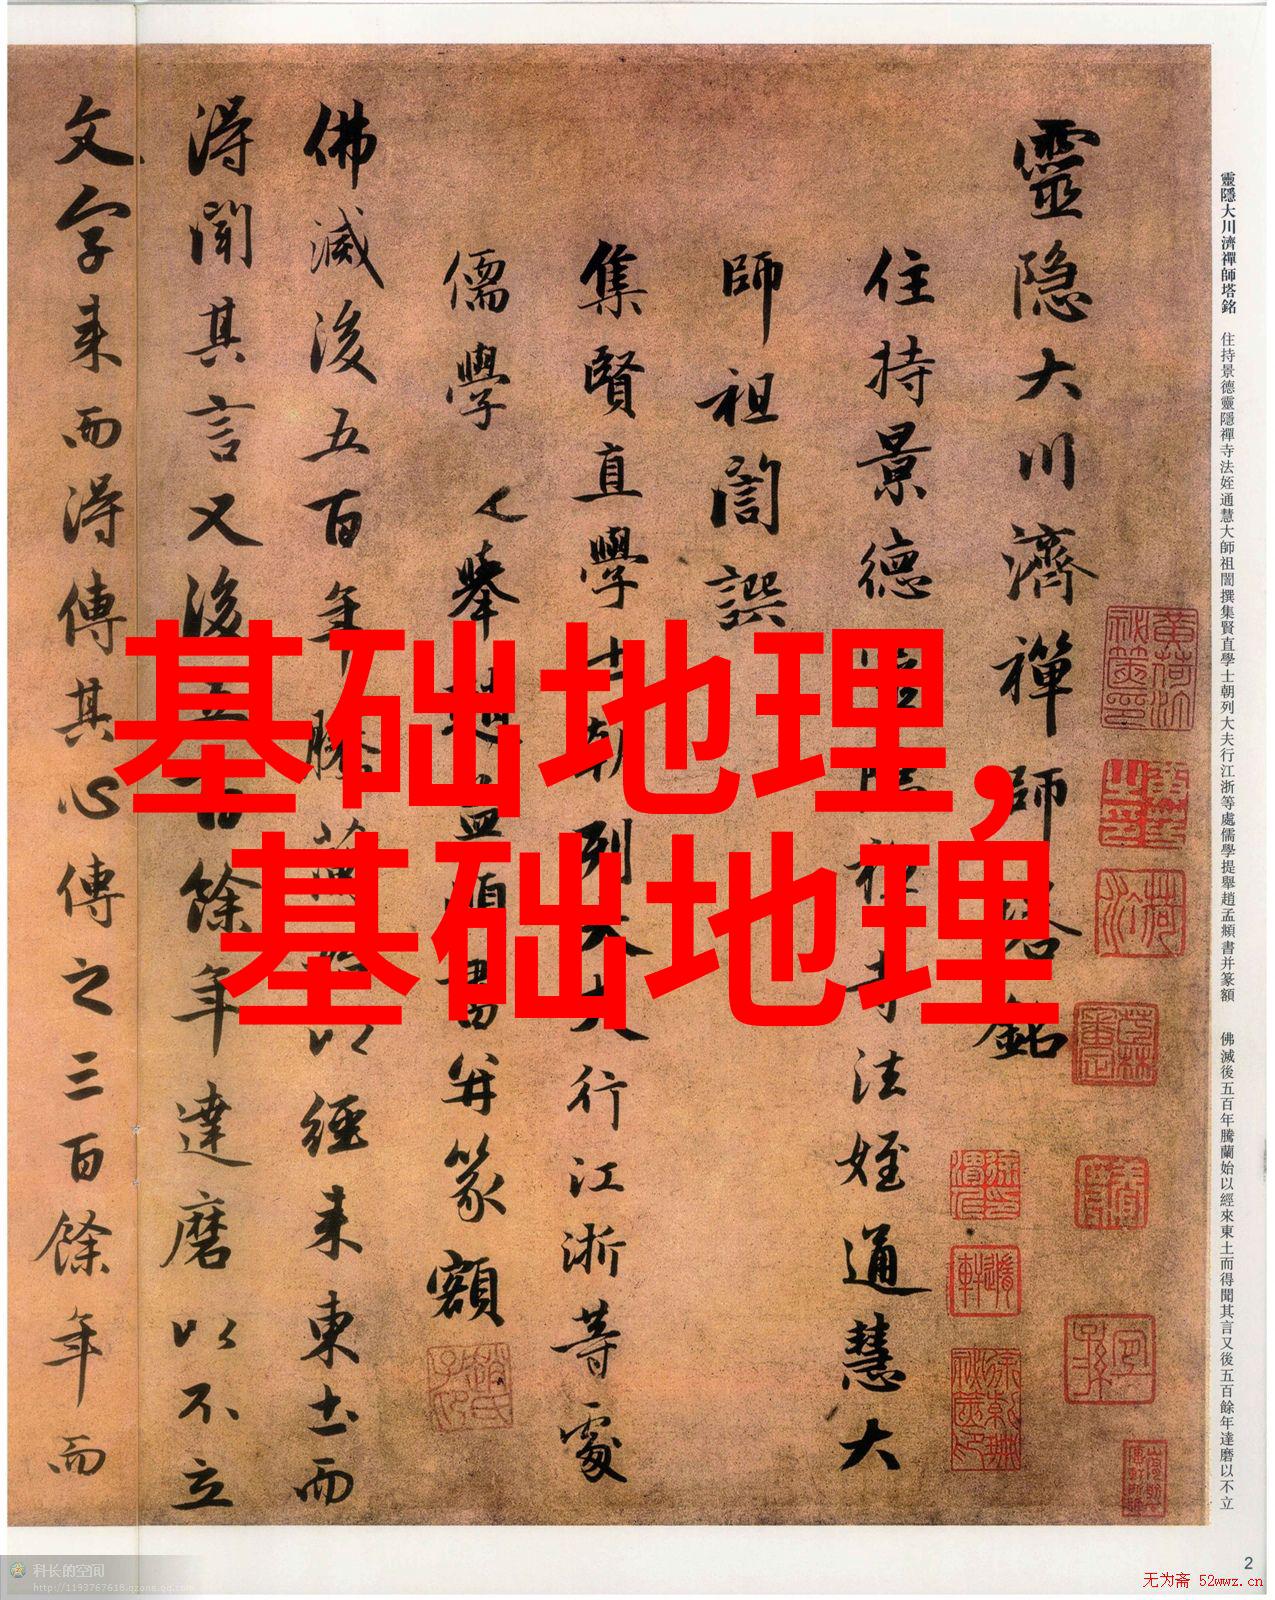 靈隐大川濟禪師塔銘
住持景德靈隐禪寺法姪通慧大
師祖誾譔
集賢直學士朝列大夫行江浙等處
儒學
舉趙孟頫書并篆額
佛滅後五百年騰蘭始以經来東土而
得聞其言又後五百餘年達磨以不立
文字来而得傳其心傳之三百餘年而
基础地理,
基础地理
靈隱大川濟禪師塔銘 住持景德靈隱禪寺法姪通慧大師祖誾撰集賢直學士朝列大夫行江浙等處儒學提舉趙孟頫書并篆額 佛滅後五百年騰蘭始以經來東土而得聞其言又後五百餘年達磨以不立
2
科长的空间
http://1193767618.qzone.qq.com
无为斋 52wwz.cn